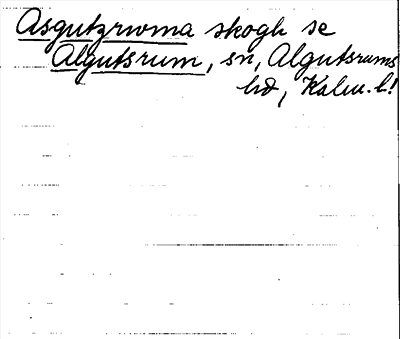 Asgutzrwma skogh se
Algutsrum, sn, Algutsrums
hd, Kalm. l!